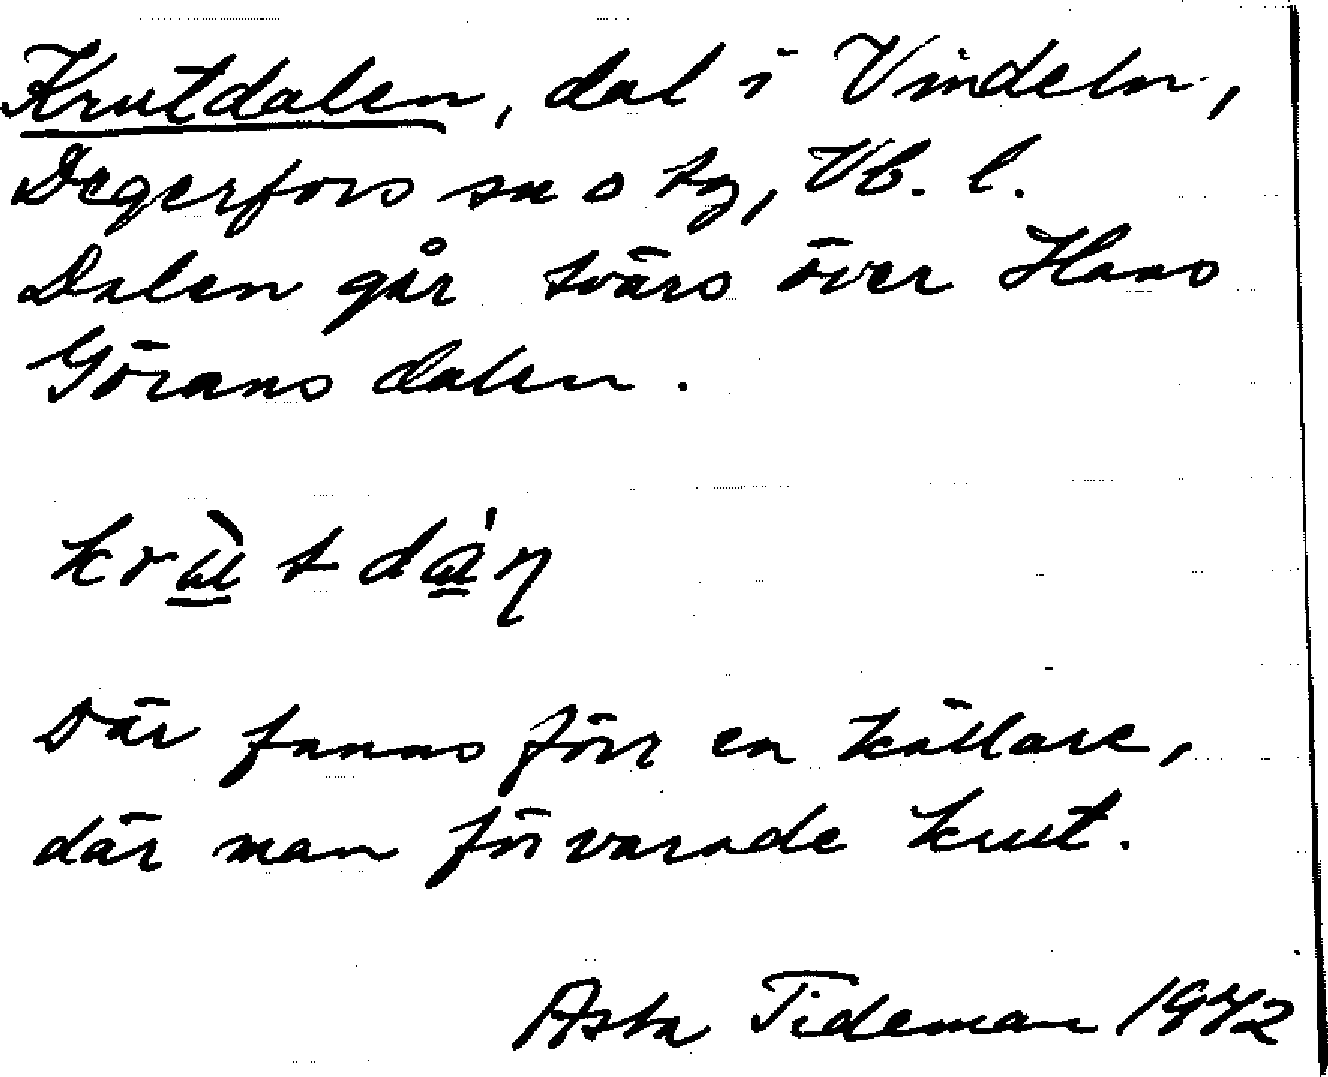 Krutdalen, dal i Vindeln,
Degerfors sn o tg, Vb. l.
Dalen går tvärs över Hans
Görans dalen.
krùtdáŋ
Där fanns förr en källare,
där man förvarade krut.
Asta Tideman 1972